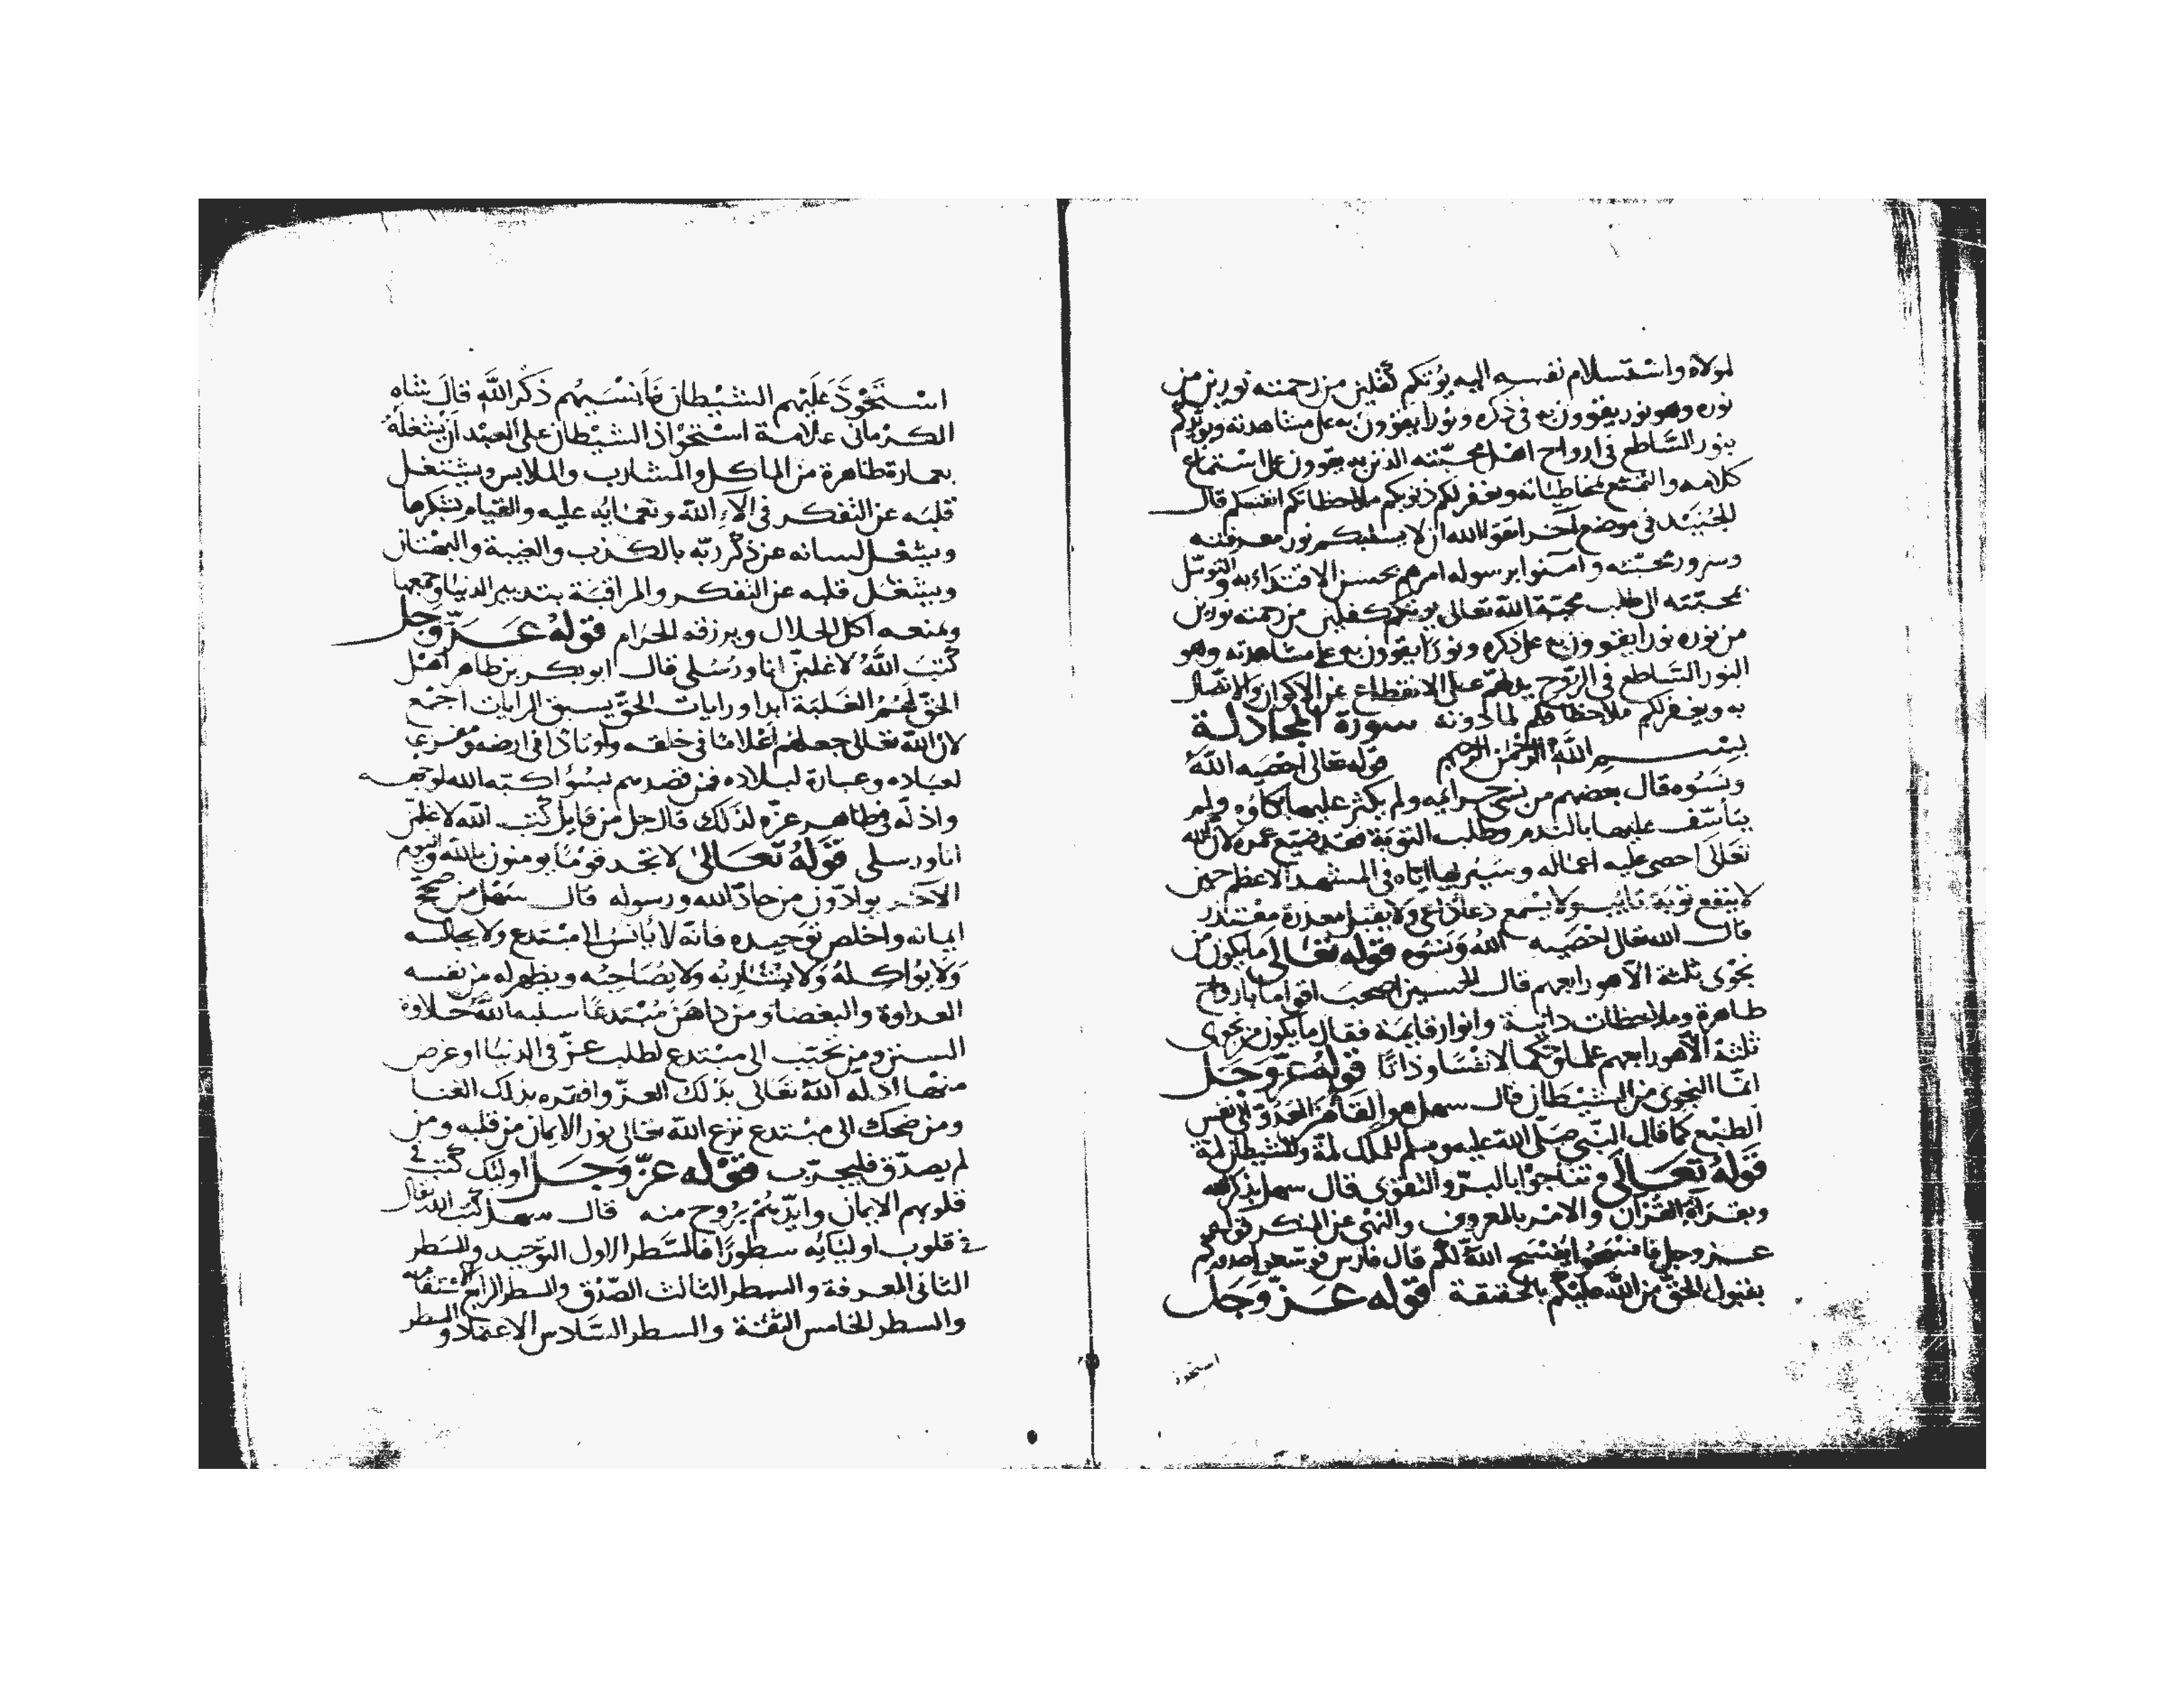 لمولاه واستسلام نفسه اليه يؤتكم كفلين من رحمته نورين من
نوره وهو نور يقوون به فى ذكره ونورا يقوون به على مشاهدته ويؤيدكم
بنور الساطع فى ارواح اهل محبّته الذين به يقوون على استماع
كلامه والتمتع بمخاطباته ويغفر لكم ذنوبكم ملاحظاتكم انفسكم قال
الجُنَيْد فى موضع آخر اتقوا الله ان لا يسلبكم نور معرفته
وسرور محبّته وآمنوا برسوله امرهم بحسن الاقتداء به والتوسّل
بمحبّته الى طلب محبّة الله تعالى يؤتكم كفلين من رحمته نورين
من نوره نورا يقوون به على ذكره ونورًا يقوون به على مشاهدته وهو
النور السّاطع فى الرّوح يدلهم على الانقطاع عن الاكوان والاتصال
به ويغفر لكم ملاحظاتكم لما دونه سورة المجادلة
بِسْمِ اللهِ الرّحمٰن الرحيم قوله تعالى احْصَيه اللهُ
ونَسُوه قال بعضهم من نسى جرايمه ولم يكثر عليها بكاؤه ولم
يتأسّف عليها بالندم وطلب التوبة فقد ضيّع عمره لان الله
تعالى احصى عليه اعماله وسيُريها ايّاه فى المشهد الاعظم حين
لا ينفع توبة تايب ولا يسمع دعاء داع ولا يقبل معذرة معتذر
قال الله تعالى احْصَيه اللهُ وَنَسُوه قوله تعَالى ما يكون من
نجْوى ثلثة الّا هو رابعهم قال الحسين اصحب اقواما بارواح
طاهرة وملاحظات دانية وانوار قايمة فقال ما يكون من نجوى
ثلثة الّا هو رابعهم علما وحكما لا نفسًا وذاتًا قولهُ عزّ وَجَل
انّما النجوى من الشيْطان قال سهل هو القاء من العَدُوّ فى نفس
الطبْع كما قال النّبى صَلى الله عليه وسلم للملَك لمّة وللشيطان لمة
قَوْلهُ تَعَالَى وتناجَوْا بالبرّ والتقوى قال سهل بذكر الله
وبقراة القرآن والامر بالمعروف والنهى عن المنكر قوله
عزوجل فافسحُوا يفْسَح اللهُ لكُم قال فارس صدوركم
بقبول الحقّ من الله عليكم بالحقيقة قوله عَزّ وَجَل
استحوذ
اسْتَحْوَذَ عَلَيْهم الشيْطان فَأنسَيهُم ذكر الله قال شاه
الكرمانى علامة استحْواذ الشيْطان على العبْد ان يشغلهُ
بعمارة ظاهرة من المآكل والمشارب والملابس ويشغل
قلبَه عن التفكر فى آلآءِ اللهِ ونعمايُه عليه والقيام بشكرها
ويشْغل لسانه عن ذكر ربّه بالكذب والغيبة والبهتان
ويشغل قلبه عن التفكر والمراقبة بتدبير الدنيا وجمعها
ويمنعه اكل الحلال ويرزقه الحرام قولهُ عَزّ وَجل
كَتَبَ اللهُ لاغلبَنّ انا ورُسُلى قال ابو بكر بن طاهر اهْل
الحقّ لهُمُ الغَلبَة ابدا ورايات الحقّ يسبق الرايات اجمَع
لان الله تعالى جعلهم اعْلامًا فى خلقه واوتادًا فى ارضه ومفزعًا
لعباده وعمارة لبلاده فمن قصدهم بسُوء اكبّه الله لوجهه
واذلّه فى ظاهر عزّه لذلك قال جل من قايل كتب الله لاغلبَنّ
انا ورسلى قَولهُ تعَالى لا تجد قومًا يومنون بالله واليوم
الآخر يوادّون من حادّ الله ورسوله قال سَهْل من صحّ
ايمانه واخلص توحيده فانّه لا يأنسُ الى مبْتدع ولا يجالسه
وَلا يوُاكلهُ وَلا يشَارِبُه وَلا يصَاحبُه ويظهر له من نفسه
العداوة والبغضا ومن داهَنَ مُبْتدعًا سلبه الله حلاوة
السنن ومن تحبّب الى مبْتدع لطلب عزّ فى الدنيا او عرض
منها اذلّه الله تعَالى بذلك العزّ وافقره بذلك الغنا
ومن ضحك الى مبْتدع نزع الله تعالى نور الايمان من قلبه ومن
لم يصدّق فليجرّب قوْله عزّ وَجَل اوليك كتب فى
قلوبهم الايمان وايّدهُمْ بِرُوح منه قال سهل كتب الله تعالى
فى قلوب اوليَايُه سطورًا فالسّطر الاول التوحيد والسطر
الثانى المعرفة والسطر الثالث الصّدْق والسطر الرابع الاستقامة
والسطر الخامس الثّقة والسطر السّادس الاعتماد والسطر